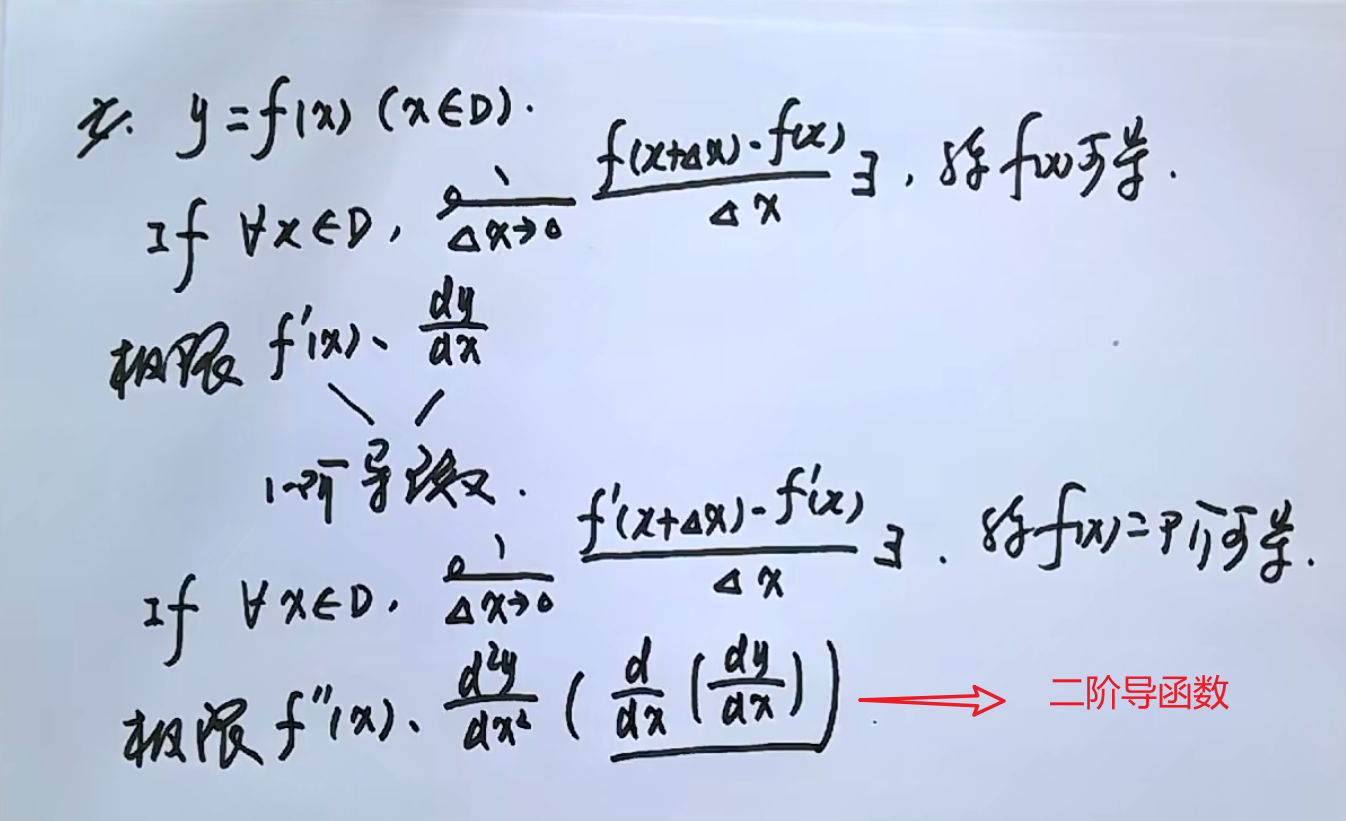 $y = f(x) (x \in D)$.
If $\forall x \in D$, $\lim_{\Delta x \to 0} \frac{f(x+\Delta x) - f(x)}{\Delta x}$ ∃, 称 $f(x)$ 可导.
极限 $f'(x)$、$\frac{dy}{dx}$
1阶导函数.
If $\forall x \in D$, $\lim_{\Delta x \to 0} \frac{f'(x+\Delta x) - f'(x)}{\Delta x}$ ∃. 称 $f(x)$ 二阶可导.
极限 $f''(x)$、$\frac{d^2y}{dx^2}$ ($\frac{d}{dx}(\frac{dy}{dx})$) → 二阶导函数